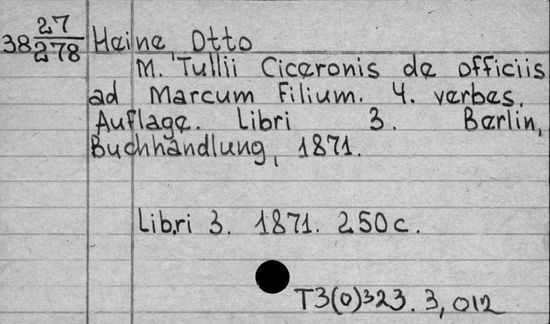 38 27/278
Heine, Otto
M. Tullii Ciceronis de officiis
ad Marcum Filium. 4. verbes.
Auflage. Libri 3. Berlin,
Buchhandlung, 1871.
Libri 3. 1871. 250 c.
T3(0)323.3,012